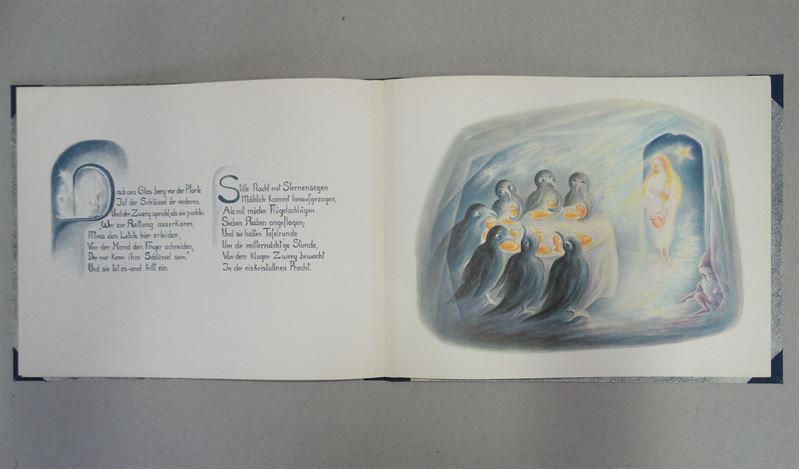 Doch am Glas berg vor der Pforte
Ist der Schlüssel ihr verloren,
Und der Zwerg spricht, als sie pochte:
"Wer zur Rettung auserkoren,
Muss das Letzte hier erleiden,
Von der Hand den Finger schneiden,
Der nur kann ihm Schlüssel sein."
Und sie tat es-und tritt ein.
Stille Nacht mit Sternensegen
Mählich kommt heraufgezogen,
Als mit müden Flügelschlägen
Sieben Raben angeflogen;
Und sie halten Tafelrunde
Um die mitternächt'ge Stunde,
Von dem klugen Zwerg bewacht
In der eiskristallnen Pracht.